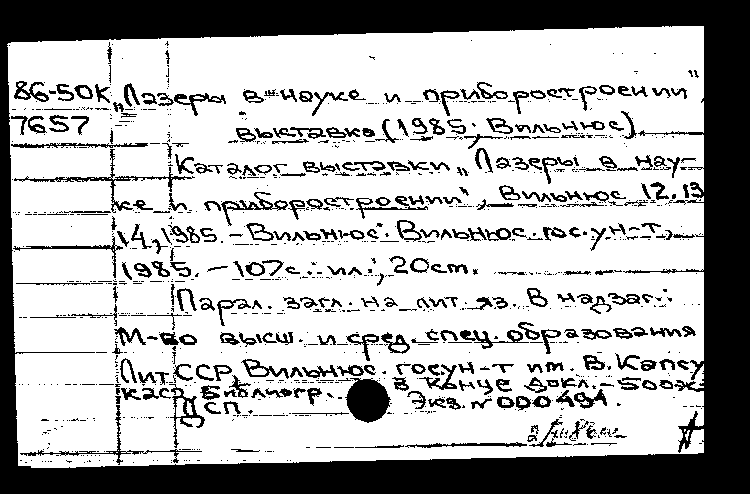 86-50К „Лазеры в науке и приборостроении",
7657 выставка (1985; Вильнюс).
Каталог выставки „Лазеры в нау-
ке и приборостроении", Вильнюс 12.13
14, 1985. – Вильнюс: Вильнюс. гос. ун-т,
1985. – 107с.: ил.; 20cm.
Парал. загл. на лит. яз. В надзаг.:
М-во высш. и сред. спец. образования
Лит ССР, Вильнюс. госун-т им. В. Капсу
каса. Библиогр. в конце докл. – 500экз
ДСП. Экз. № 000494.